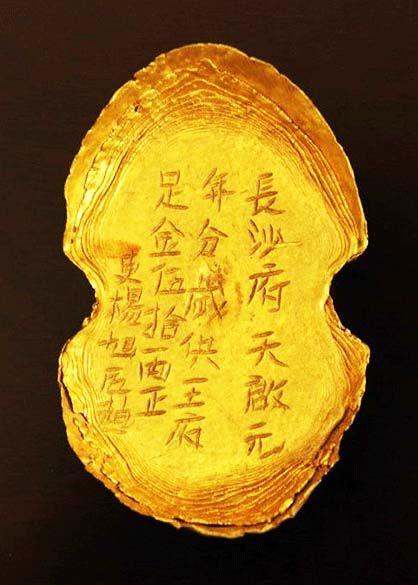 長沙府天啟元
年分歲供王府
足金伍拾兩正
吏楊旭匠趙